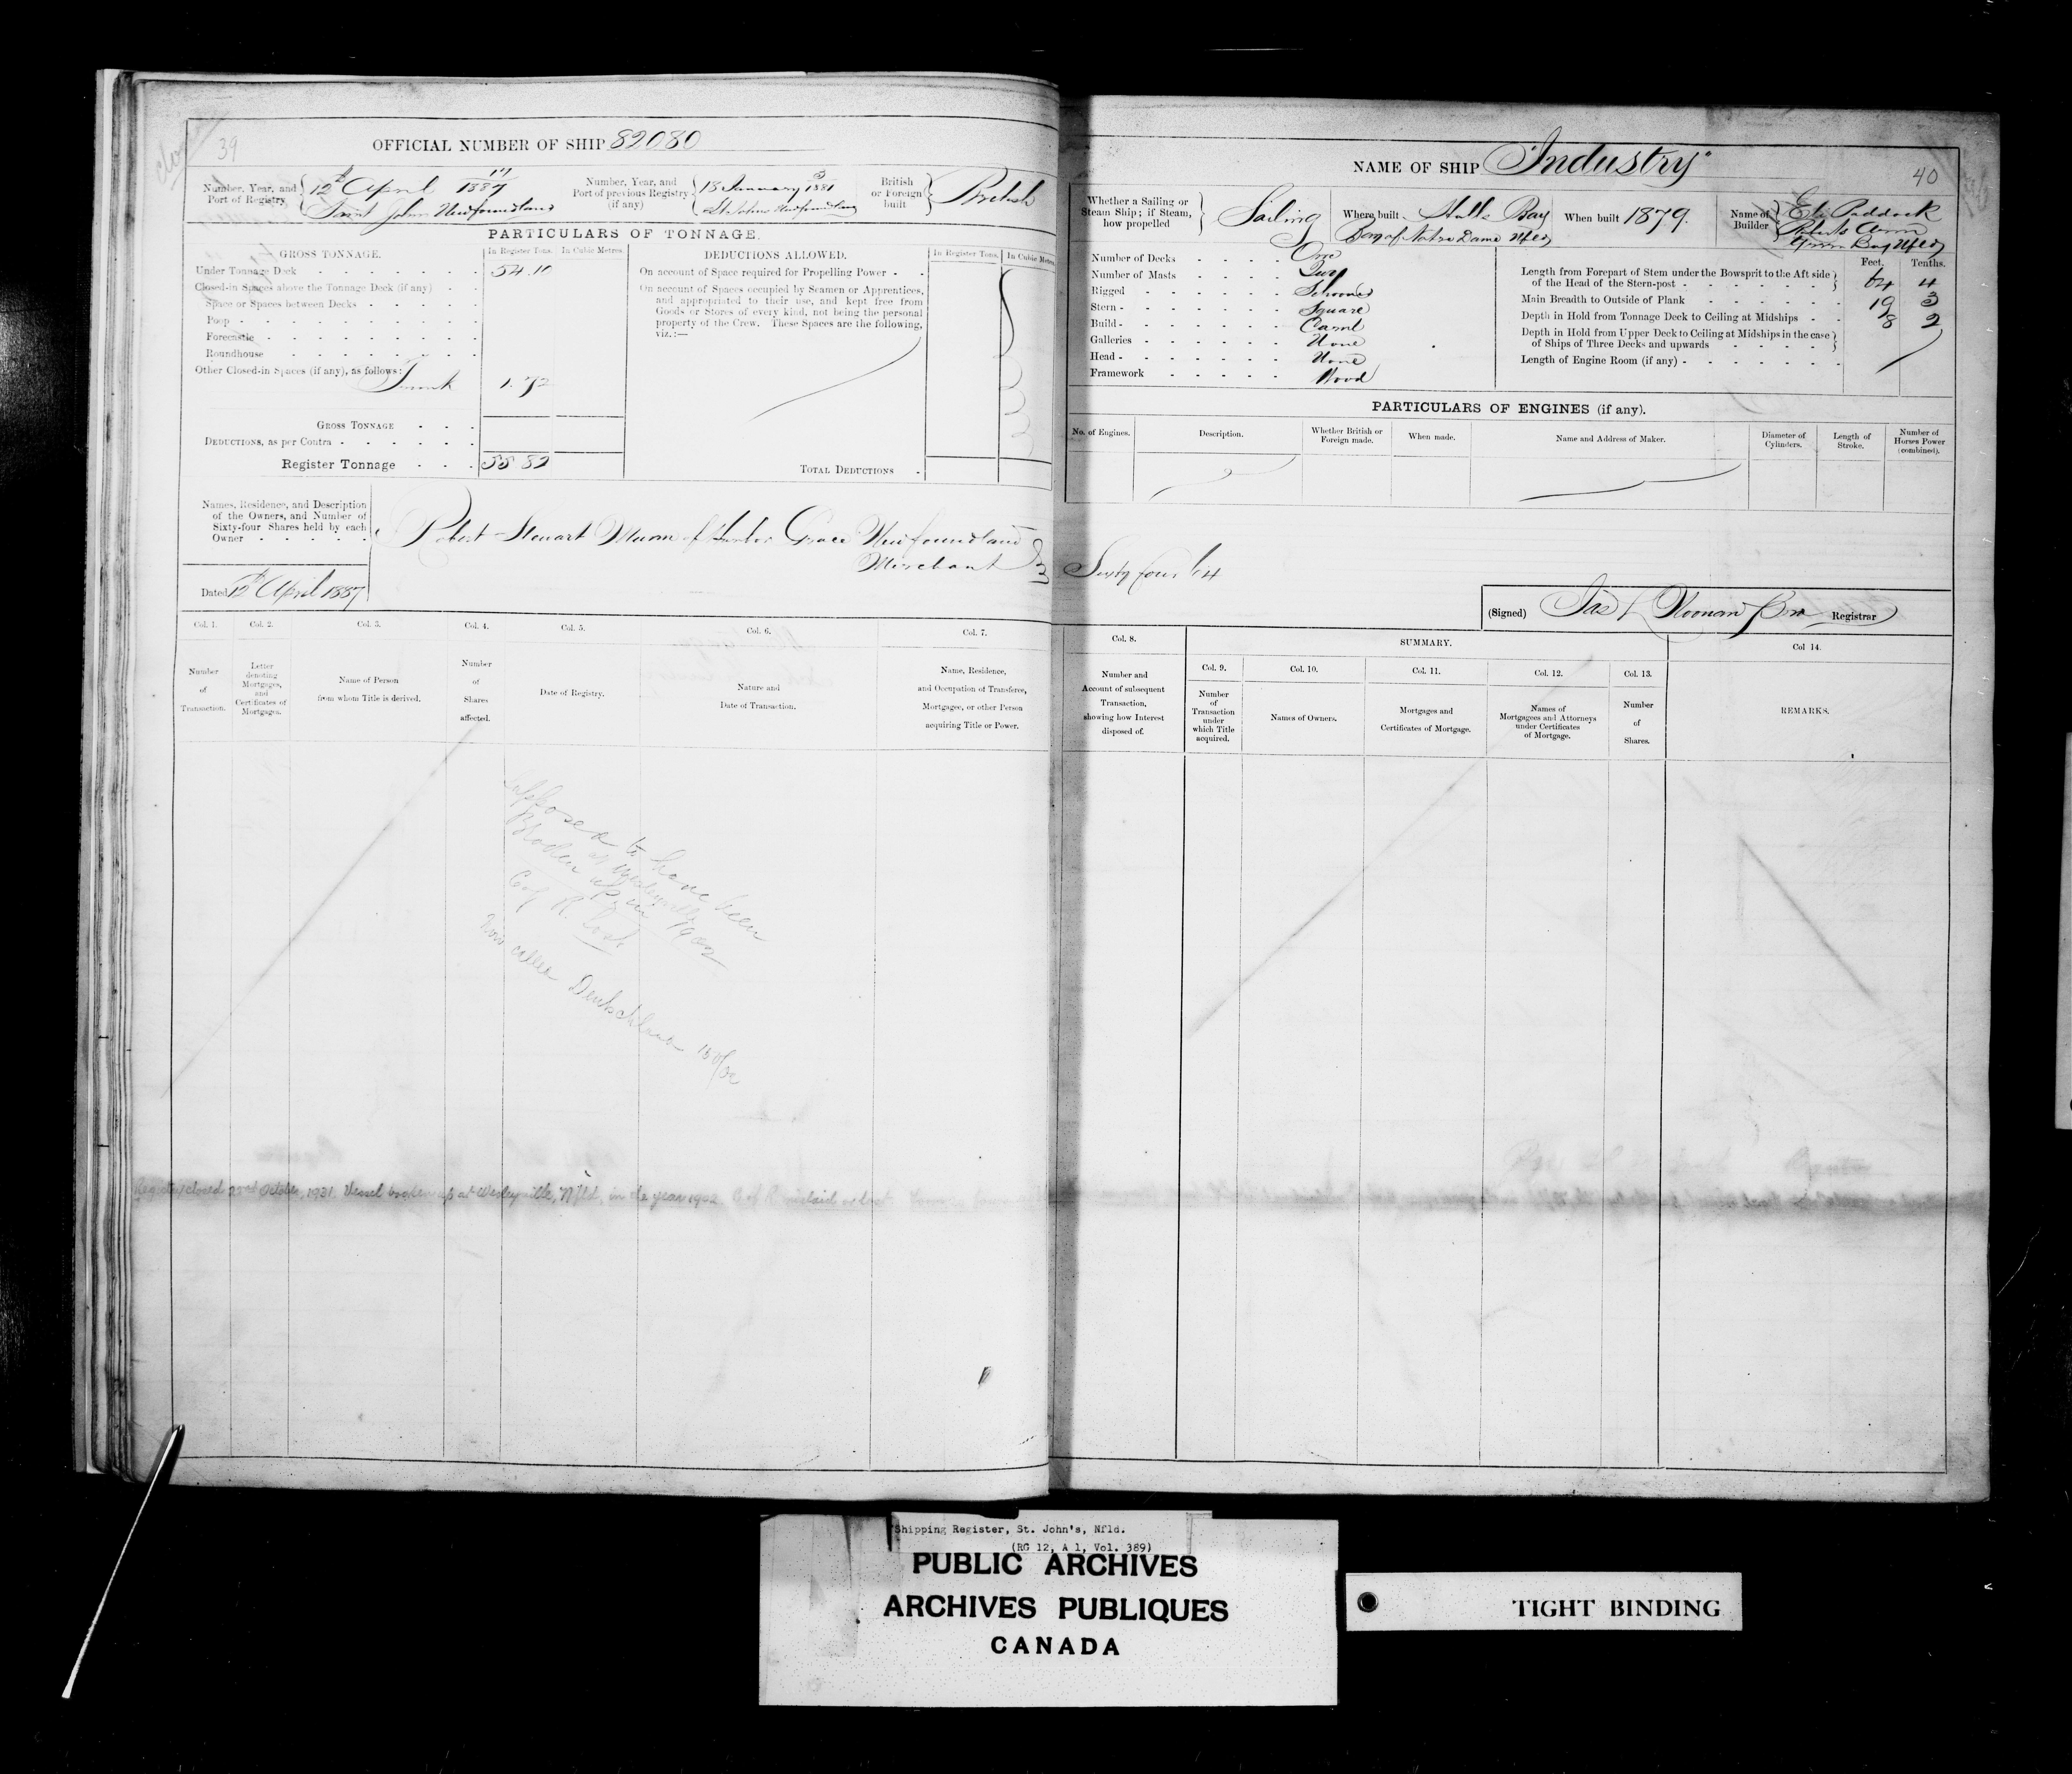 39
OFFICIAL NUMBER OF SHIP 82080
Number, Year, and Port of Registry 12th April 1887 Saint Johns Newfoundland
Number, Year, and Port of previous Registry (if any) 13 January 1881 St Johns Newfoundland
British or Foreign built British
PARTICULARS OF TONNAGE.
GROSS TONNAGE. In Register Tons. In Cubic Metres.
Under Tonnage Deck 54.10
Closed-in Spaces above the Tonnage Deck (if any)
Space or Spaces between Decks
Poop
Forecastle
Roundhouse
Other Closed-in Spaces (if any), as follows:
Trunk 1.72
GROSS TONNAGE
DEDUCTIONS, as per Contra
Register Tonnage 55 82
DEDUCTIONS ALLOWED. In Register Tons. In Cubic Metres.
On account of Space required for Propelling Power
On account of Spaces occupied by Seamen or Apprentices,
and appropriated to their use, and kept free from
Goods or Stores of every kind, not being the personal
property of the Crew. These Spaces are the following,
viz.:—
TOTAL DEDUCTIONS
Names, Residence, and Description
of the Owners, and Number of
Sixty-four Shares held by each
Owner
Robert Stewart Munn of Harbor Grace Newfoundland
Merchant
Dated 12th April 1887
Col. 1. Number of Transaction.
Col. 2. Letter denoting Mortgages, and Certificates of Mortgages.
Col. 3. Name of Person from whom Title is derived.
Col. 4. Number of Shares affected.
Col. 5. Date of Registry.
Col. 6. Nature and Date of Transaction.
Col. 7. Name, Residence, and Occupation of Transferee, Mortgagee, or other Person acquiring Title or Power.
Supposed to have been
at Wesleyville
Broken up in 1902
C of R. lost
Now called Deutschland
Register closed 23rd October, 1931. Vessel broken up at Wesleyville, Nfld, in the year 1902. C of R mislaid or lost
NAME OF SHIP "Industry"
40
Whether a Sailing or Steam Ship; if Steam, how propelled Sailing
Where built Halls Bay Bay of Notre Dame Nfld
When built 1879.
Name of Builder Eli Paddock Roberts Arm Green Bay Nfld
Number of Decks One
Number of Masts Two
Rigged Schooner
Stern Square
Build Carvel
Galleries None
Head None
Framework Wood
Feet. Tenths.
Length from Forepart of Stem under the Bowsprit to the Aft side
of the Head of the Stern-post 64 4
Main Breadth to Outside of Plank 19 3
Depth in Hold from Tonnage Deck to Ceiling at Midships 8 2
Depth in Hold from Upper Deck to Ceiling at Midships in the case
of Ships of Three Decks and upwards
Length of Engine Room (if any)
PARTICULARS OF ENGINES (if any).
No. of Engines.
Description.
Whether British or Foreign made.
When made.
Name and Address of Maker.
Diameter of Cylinders.
Length of Stroke.
Number of Horses Power (combined).
Sixty four 64
(Signed) Jas L Noonan Registrar
Col. 8. Number and Account of subsequent Transaction, showing how Interest disposed of.
SUMMARY.
Col. 9. Number of Transaction under which Title acquired.
Col. 10. Names of Owners.
Col. 11. Mortgages and Certificates of Mortgage.
Col. 12. Names of Mortgagees and Attorneys under Certificates of Mortgage.
Col. 13. Number of Shares.
Col 14. REMARKS.
Shipping Register, St. John's, Nfld.
(RG 12, A 1, Vol. 389)
PUBLIC ARCHIVES
ARCHIVES PUBLIQUES
CANADA
TIGHT BINDING